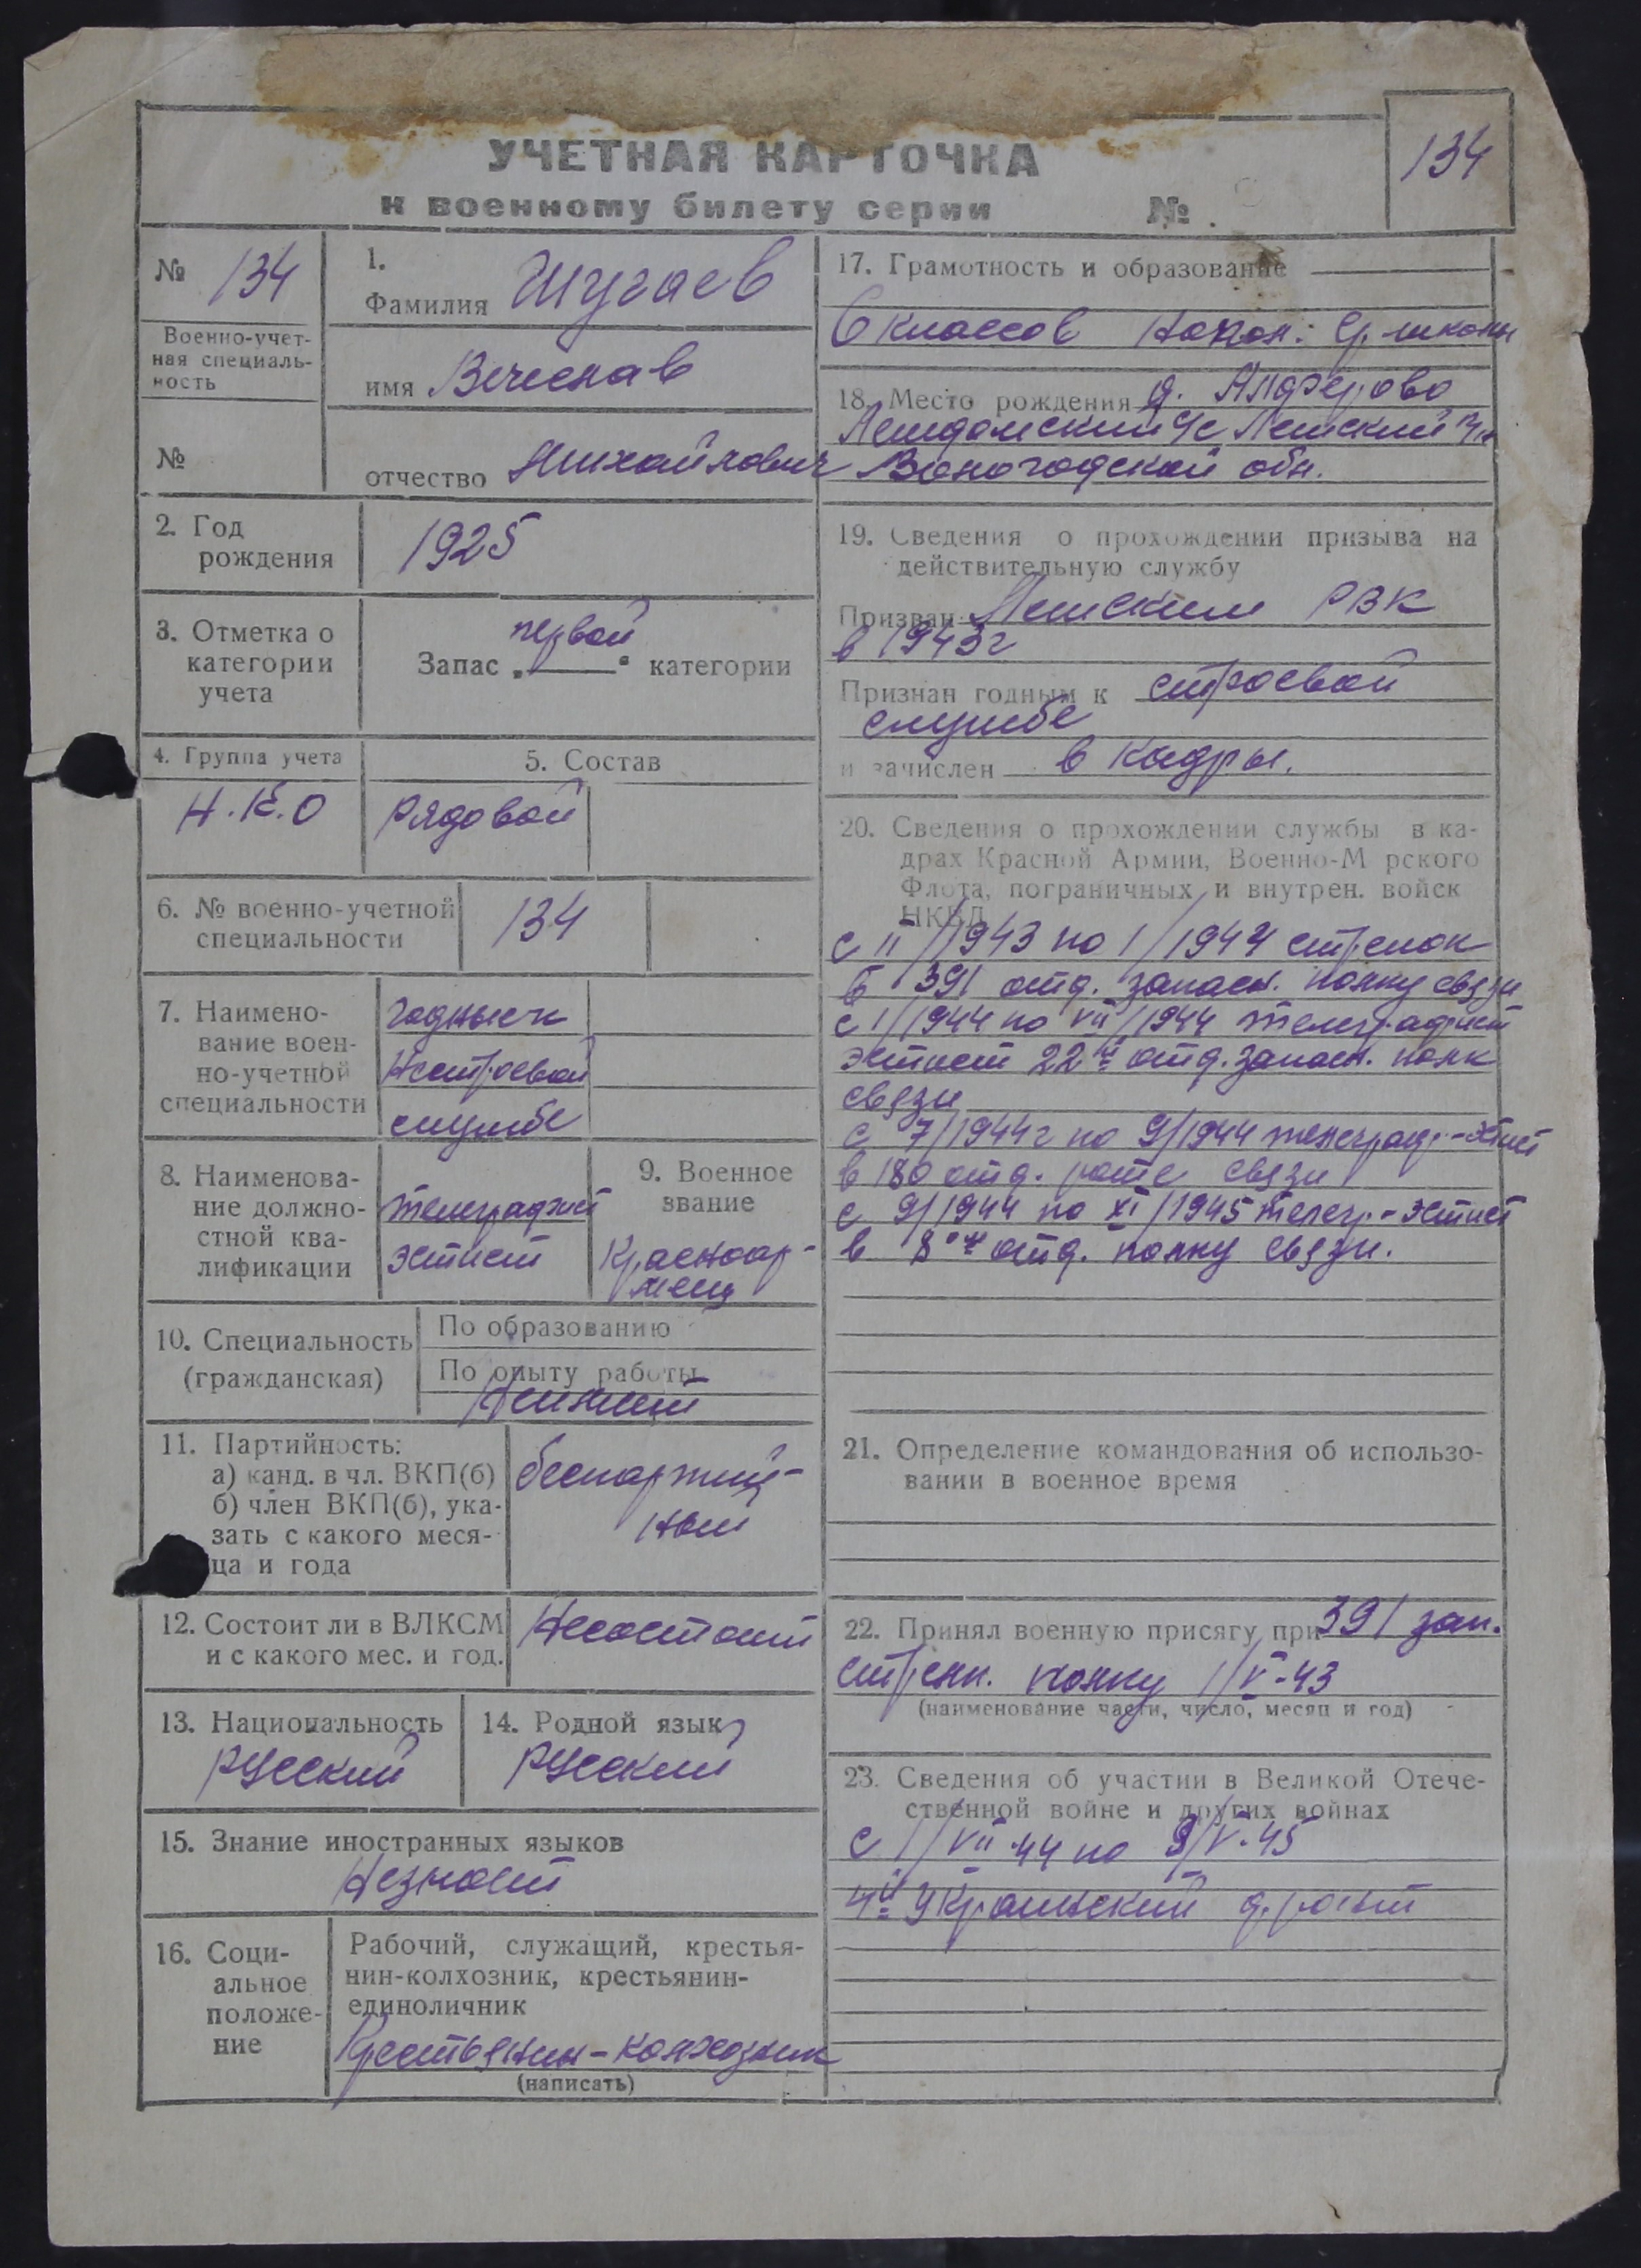 УЧЕТНАЯ КАРТОЧКА
к военному билету серии №
134
№ 134
Военно-учет-
ная специаль-
ность
№
1.
Фамилия Шугаев
имя Вячеслав
отчество Михайлович
2. Год
рождения
1925
3. Отметка о
категории
учета
первой
Запас „ “ категории
4. Группа учета
Н.К.О
5. Состав
рядовой
6. № военно-учетной
специальности
134
7. Наимено-
вание воен-
но-учетной
специальности
годные к
нестроевой
службе
8. Наименова-
ние должно-
стной ква-
лификации
телеграфист
эстист
9. Военное
звание
Красноар-
меец
10. Специальность
(гражданская)
По образованию
По опыту работы
11. Партийность:
а) канд. в чл. ВКП(б)
б) член ВКП(б), ука-
зать с какого меся-
ца и года
беспартий-
ный
12. Состоит ли в ВЛКСМ
и с какого мес. и год.
Несостоит
13. Национальность
русский
14. Родной язык
русский
15. Знание иностранных языков
Незнает
16. Соци-
альное
положе-
ние
Рабочий, служащий, крестья-
нин-колхозник, крестьянин-
единоличник
Крестьянин-колхозник
(написать)
17. Грамотность и образование
6 классов ср. школы
18. Место рождения д. Алферово
с/с Лежский р-н
Вологодской обл.
19. Сведения о прохождении призыва на
действительную службу
Призван Лежским РВК
в 1943г
Признан годным к строевой
службе
и зачислен в кадры.
20. Сведения о прохождении службы в ка-
драх Красной Армии, Военно-М рского
Флота, пограничных и внутрен. войск
НКВД
с II/1943 по I/1944 стрелок
в 391 отд. запасн. полку связи
с I/1944 по VII/1944 телеграфист
эстист 22й отд. запасн. полк
связи
с 7/1944г по 9/1944 телеграф.-эстист
в 180 отд. роте связи
с 9/1944 по XI/1945 телегр.-эстист
в 8ом отд. полку связи.
21. Определение командования об использо-
вании в военное время
22. Принял военную присягу при 391 зап.
стрелк. полку 1/V-43
(наименование части, число, месяц и год)
23. Сведения об участии в Великой Отече-
ственной войне и других войнах
с 1/VII-44 по 9/V-45
4й Украинский фронт